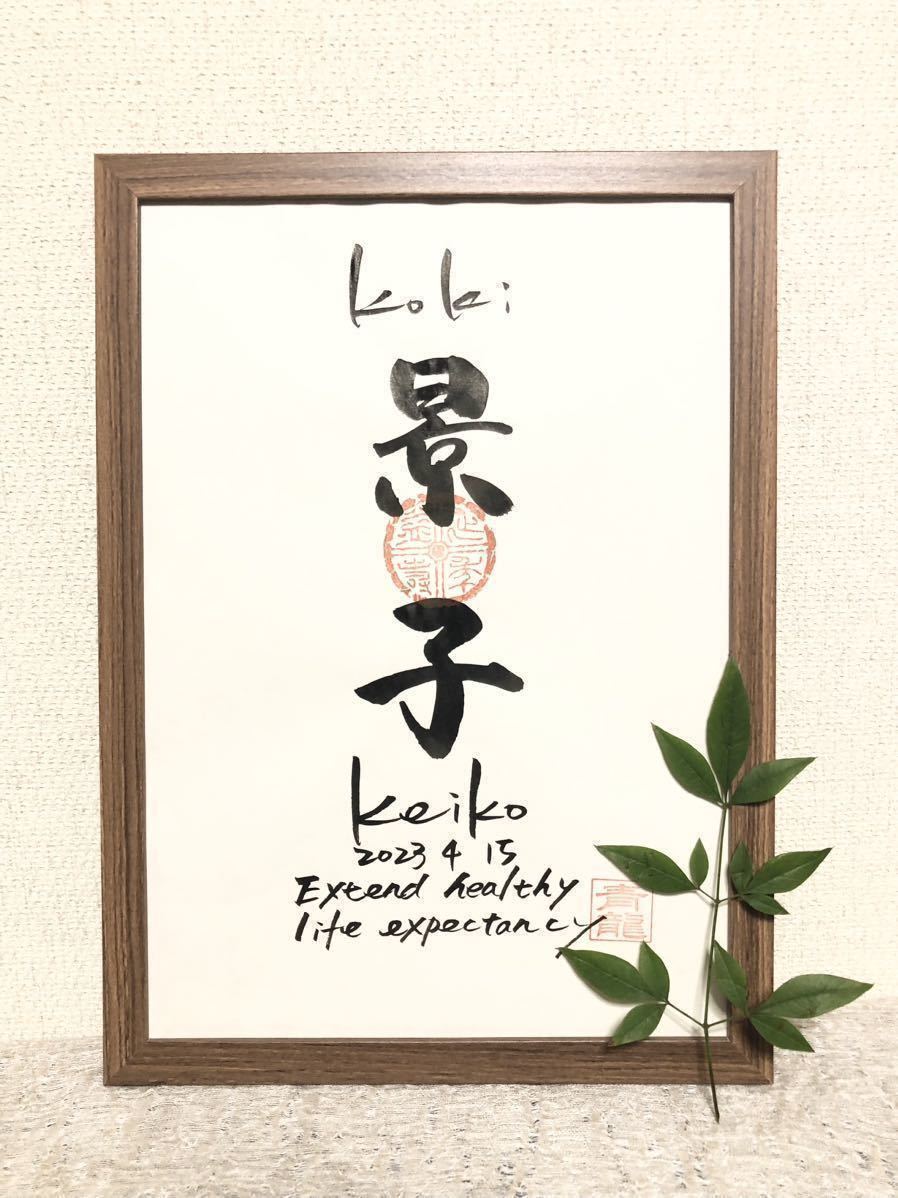 koki
景
子
keiko
2023 4 15
Extend healthy
life expectancy
青龍